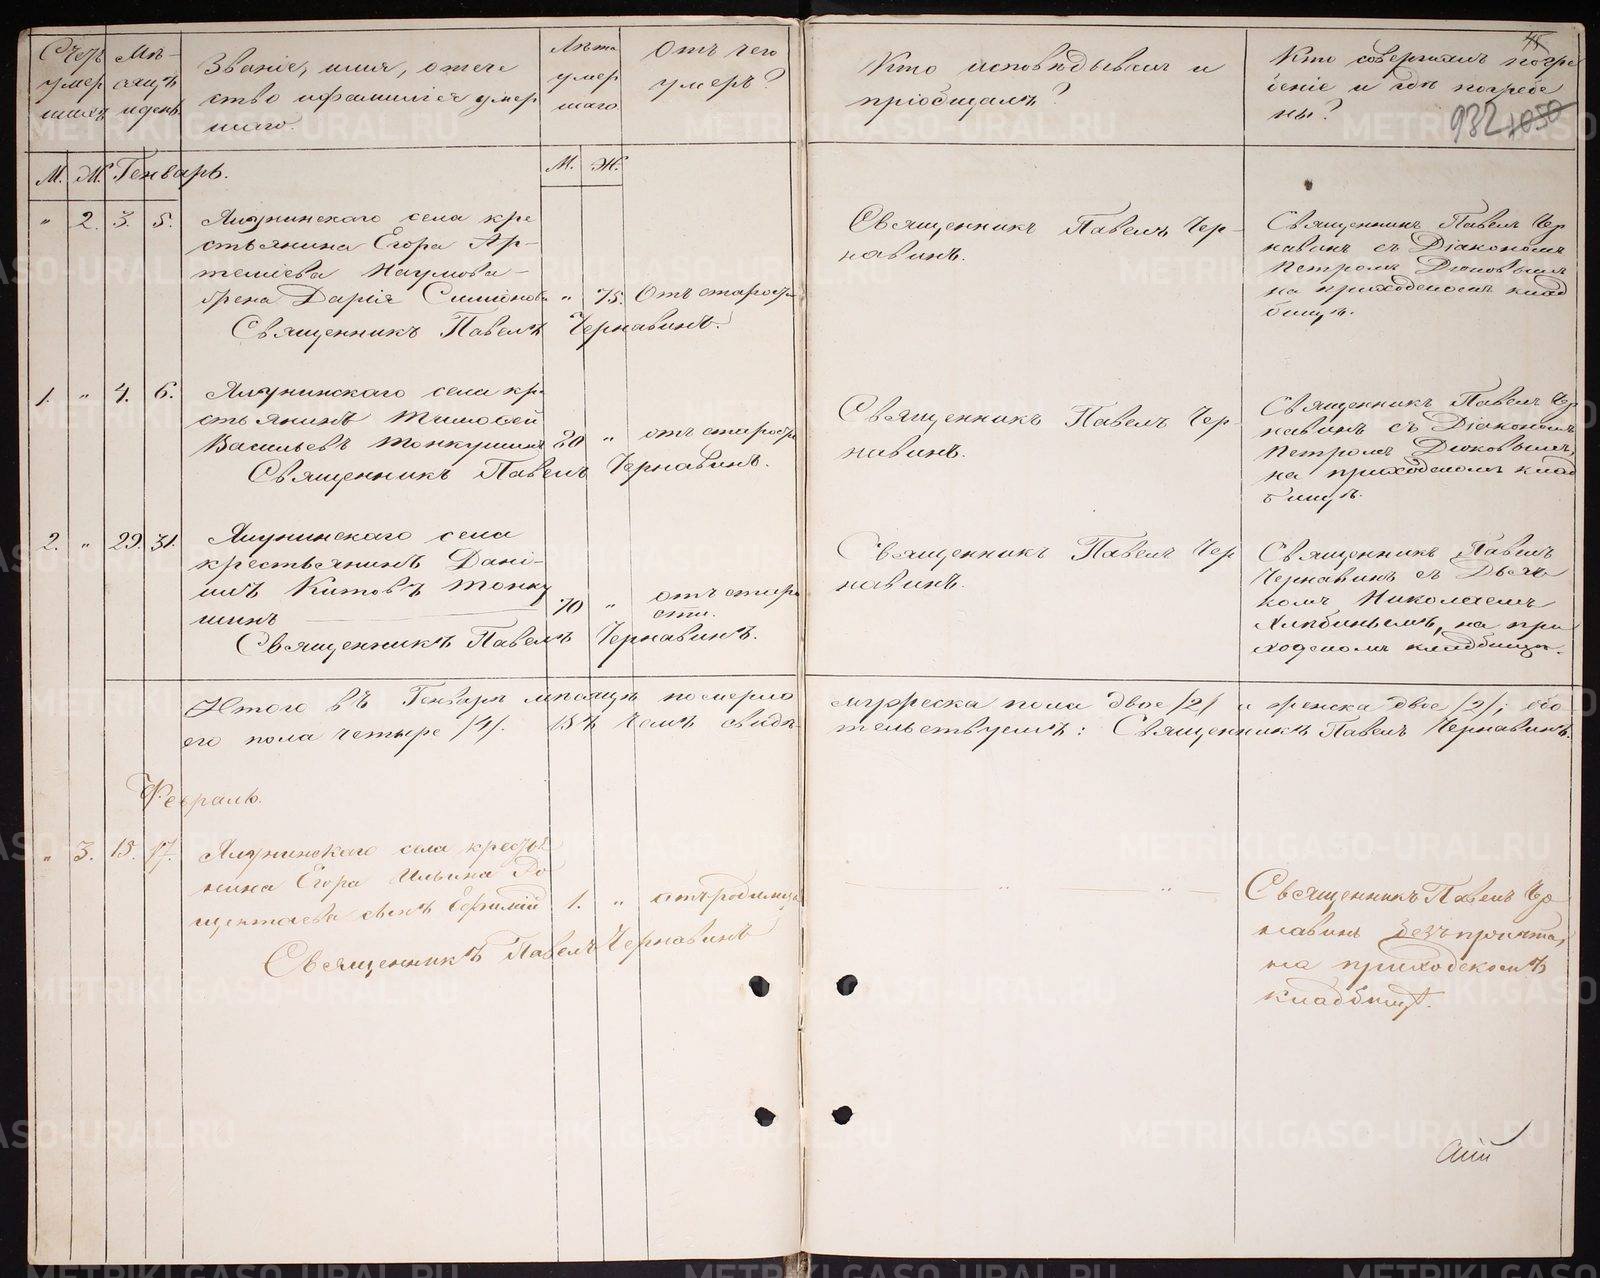 Счетъ
умер
шихъ
Мѣ-
сяцъ
и день
Званіе, имя, отече
ство и фамилія умер
шаго.
Лѣта
умер
шаго
Отъ чего
умеръ?
Кто исповѣдывалъ и
пріобщалъ?
Кто совершалъ погре
беніе и гдѣ погребе
ны?
45
932
1050
М. Ж. Генварь.
М. Ж.
" 2. 3. 5.
Ялунинскаго села кре
стьянина Егора Ар-
темiева Наумова-
жена Дарія Симіонова " 75. Отъ старости
Священникъ Павелъ Чернавинъ.
Священникъ Павелъ Чер-
навинъ.
Священникъ Павелъ Чер
навинъ съ Діакономъ
Петромъ Дюковымъ
на приходскомъ клад
бищѣ.
1. " 4. 6.
Ялунинскаго села кре
стьянинъ Тимофей
Васильевъ Тонкушинъ 80 " отъ старости
Священникъ Павелъ Чернавинъ.
Священникъ Павелъ Чер-
навинъ.
Священникъ Павелъ Чер
навинъ съ Діакономъ
Петромъ Дюковымъ,
на приходскомъ клад
бищѣ.
2. " 29. 31.
Ялунинскаго села
крестьянинъ Дані-
илъ Китовъ Тонку
шинъ 70 " отъ старо
сти.
Священникъ Павелъ Чернавинъ.
Священникъ Павелъ Чер
навинъ.
Священникъ Павелъ
Чернавинъ съ Дьяч
комъ Николаемъ
Хлѣбинымъ, на при
ходскомъ кладбищѣ.
Итого въ Генварѣ мѣсяцѣ померло мужеска пола двое /2/ и женска двое /2/; обо
его пола четыре /4/. Въ чемъ свидѣтельствуемъ: Священникъ Павелъ Чернавинъ.
Февраль.
" 3. 15. 17.
Ялунинскаго села кресть
янина Егора Ильина
сынъ 1. " отъ родимца
Священникъ Павелъ Чернавинъ
" "
Священникъ Павелъ Чер
навинъ безъ причта,
на приходскомъ
кладбищѣ.